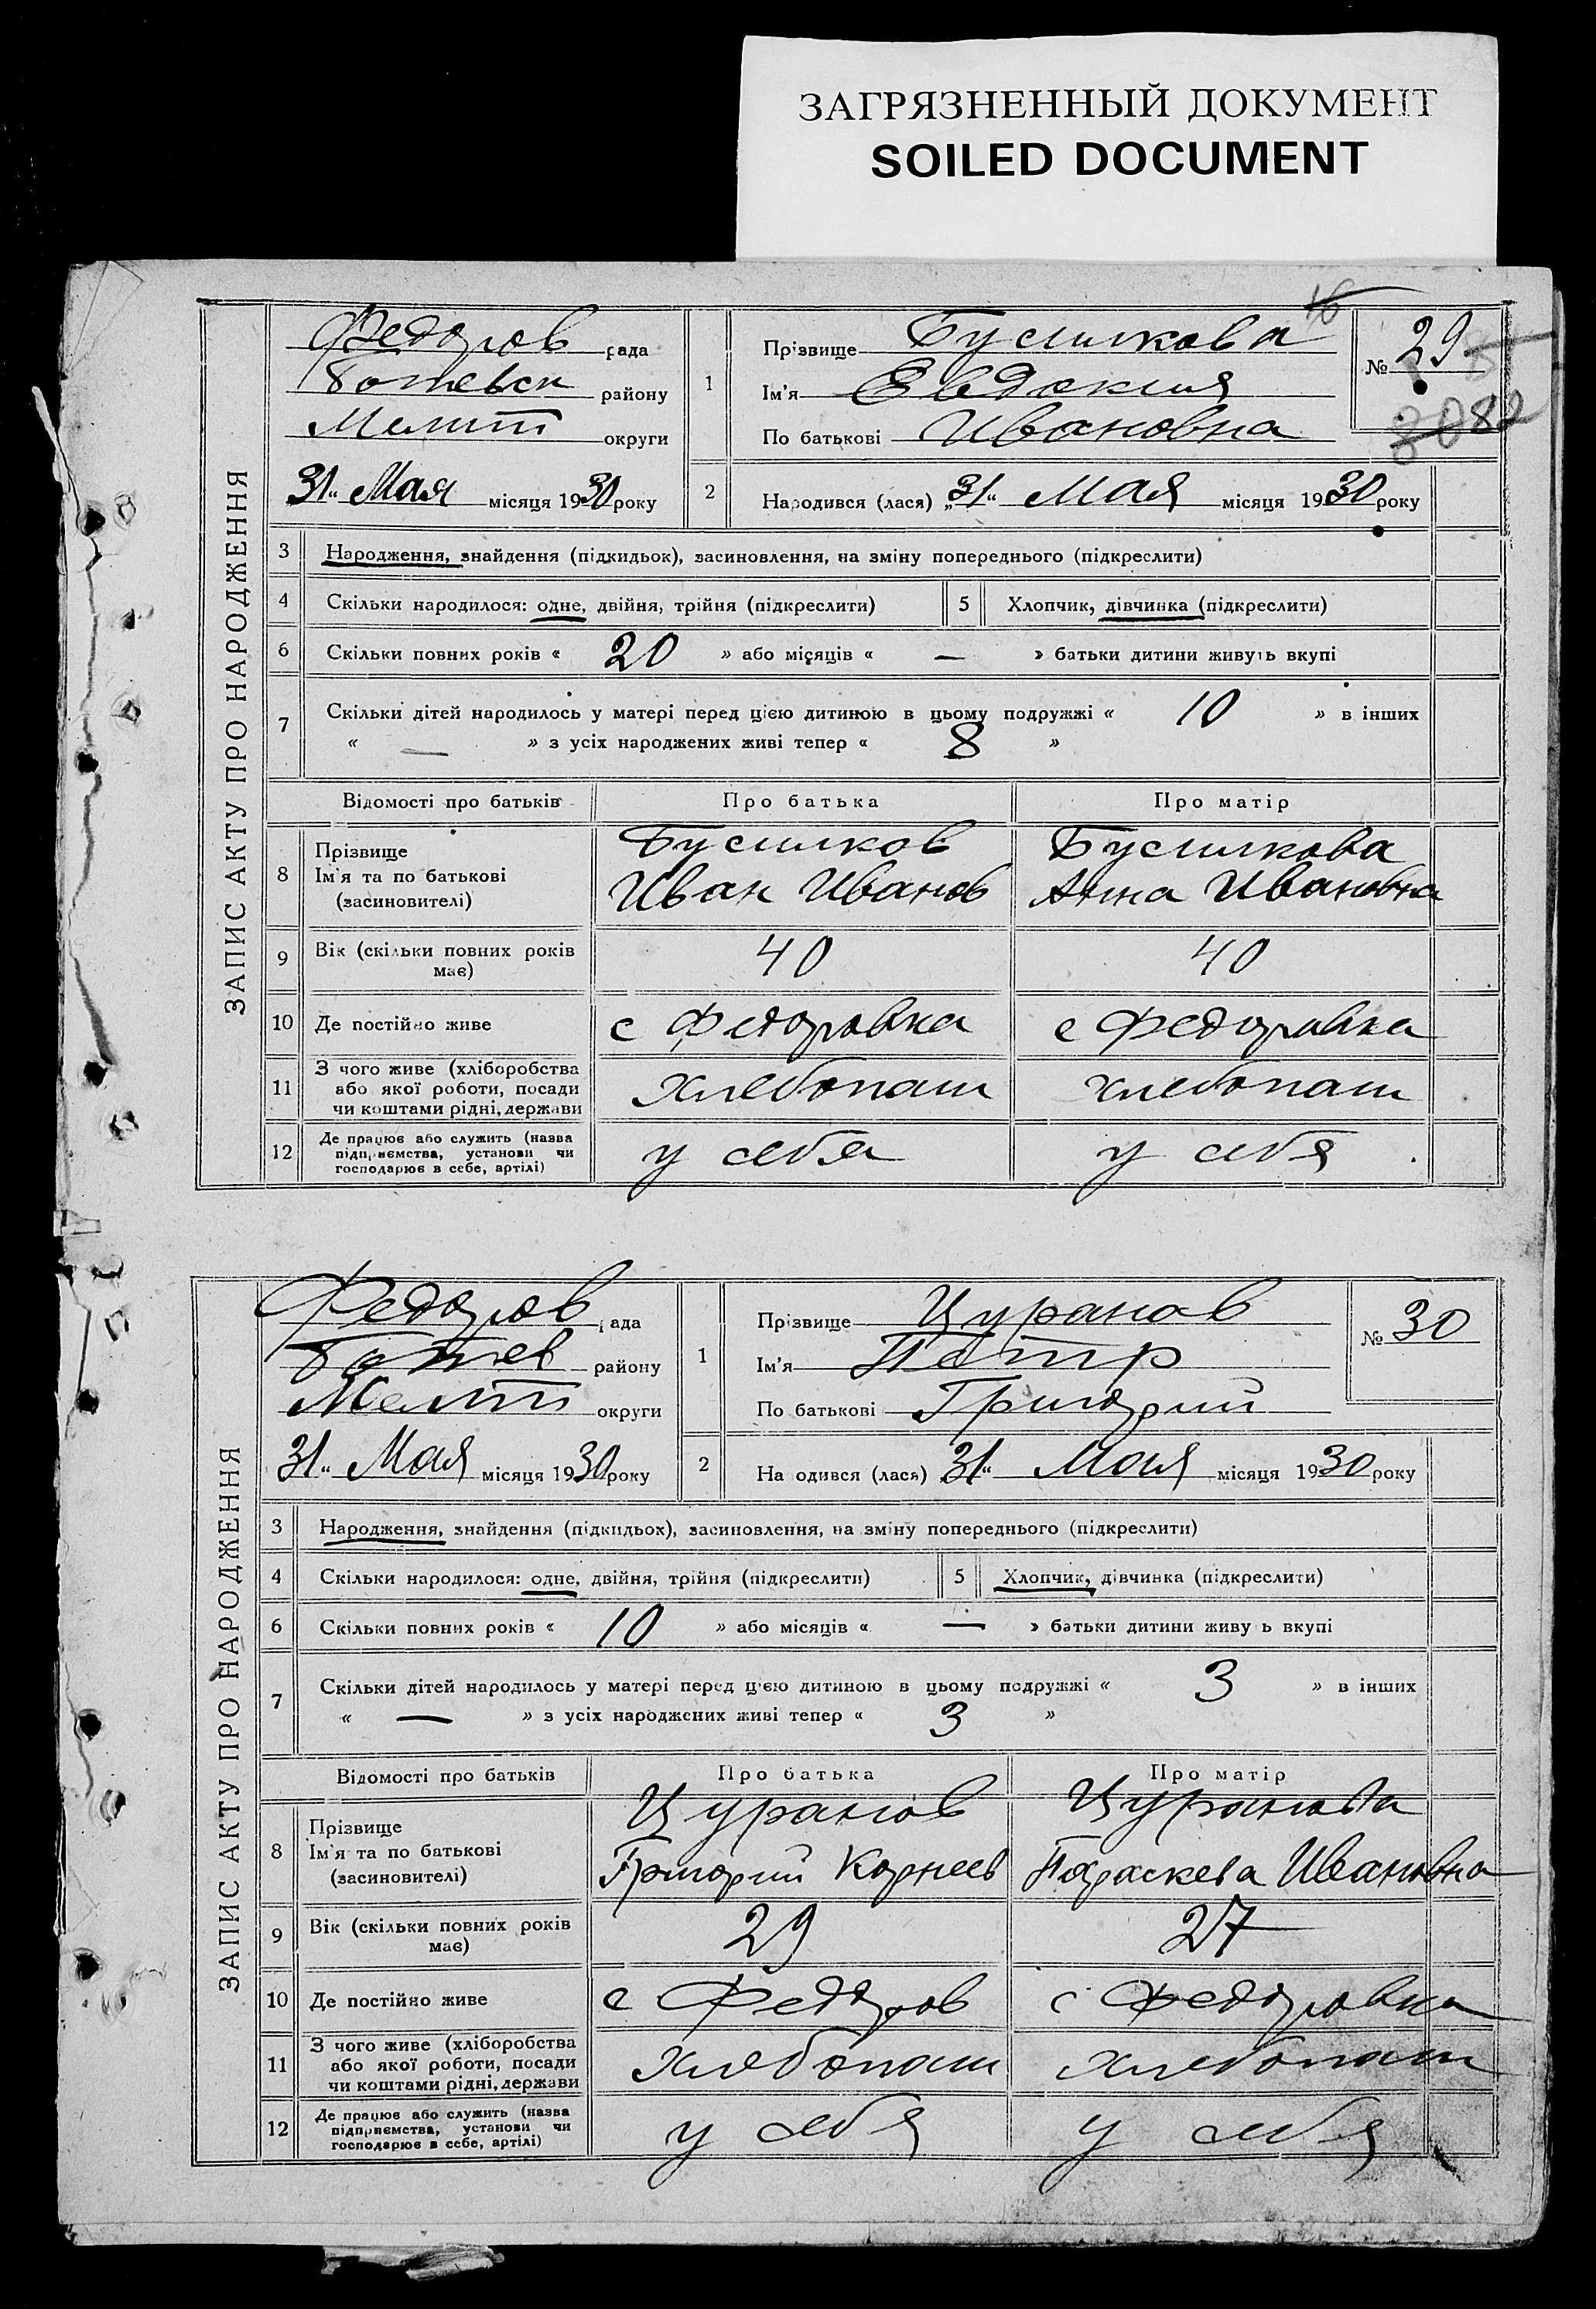 ЗАГРЯЗНЕННЫЙ ДОКУМЕНТ
SOILED DOCUMENT
ЗАПИС АКТУ ПРО НАРОДЖЕННЯ
16
Федоров рада
Ботевск району
Мелит округи
31 " Мая місяця 1930 року
1
Прізвище Бусилкова
Ім'я Евдокия
По батькові Ивановна
№ 29
82
2 Народився (лася) „31" Мая місяця 1930 року
3 Народження, знайдення (підкидьок), засиновлення, на зміну попереднього (підкреслити)
4 Скільки народилося: одне, двійня, трійня (підкреслити) 5 Хлопчик, дівчинка (підкреслити)
6 Скільки повних років « 20 » або місяців « — » батьки дитини живуть вкупі
7 Скільки дітей народилось у матері перед цією дитиною в цьому подружжі « 10 » в інших
« — » з усіх народжених живі тепер « 8 »
Відомості про батьків Про батька Про матір
8 Прізвище Бусилков Бусилкова
Ім'я та по батькові Иван Иванов Анна Ивановна
(засиновителі)
9 Вік (скільки повних років має) 40 40
10 Де постійно живе с Федоровка с Федоровка
11 З чого живе (хліборобства або якої роботи, посади чи коштами рідні, держави хлебопаш хлебопаш
12 Де працює або служить (назва підприємства, установи чи господарює в себе, артілі) у себя у себя
ЗАПИС АКТУ ПРО НАРОДЖЕННЯ
Федоров рада
Ботев району
Мелит округи
31 " Мая місяця 1930 року
1
Прізвище Цуранов
Ім'я Петр
По батькові Григорий
№ 30
2 На одився (лася) 31" Мая місяця 1930 року
3 Народження, знайдення (підкидьок), засиновлення, на зміну попереднього (підкреслити)
4 Скільки народилося: одне, двійня, трійня (підкреслити) 5 Хлопчик, дівчинка (підкреслити)
6 Скільки повних років « 10 » або місяців « — » батьки дитини живу ь вкупі
7 Скільки дітей народилось у матері перед цією дитиною в цьому подружжі « 3 » в інших
« — » з усіх народжених живі тепер « 3 »
Відомості про батьків Про батька Про матір
8 Прізвище Цуранов Цуранова
Ім'я та по батькові Григорий Корнеев Параскева Ивановна
(засиновителі)
9 Вік (скільки повних років має) 29 27
10 Де постійно живе с Федоров с Федоровка
11 З чого живе (хліборобства або якої роботи, посади чи коштами рідні, держави хлебопаш хлебопаш
12 Де працює або служить (назва підприємства, установи чи господарює в себе, артілі) у себя у себя